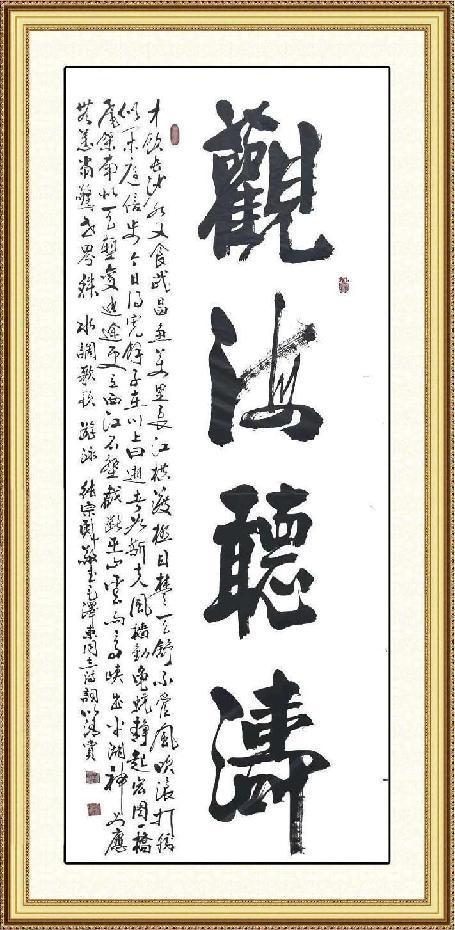 觀海聽濤
才飲長沙水又食武昌魚萬里長江橫渡極目楚天舒不管風吹浪打勝
似閑庭信步今日得寬餘子在川上曰逝者如斯夫風檣動龜蛇靜起宏圖一橋
飛架南北天塹變通途更立西江石壁截斷巫山雲雨高峽出平湖神女應
無恙當驚世界殊 水調歌頭 游泳 書毛澤東同志詩詞